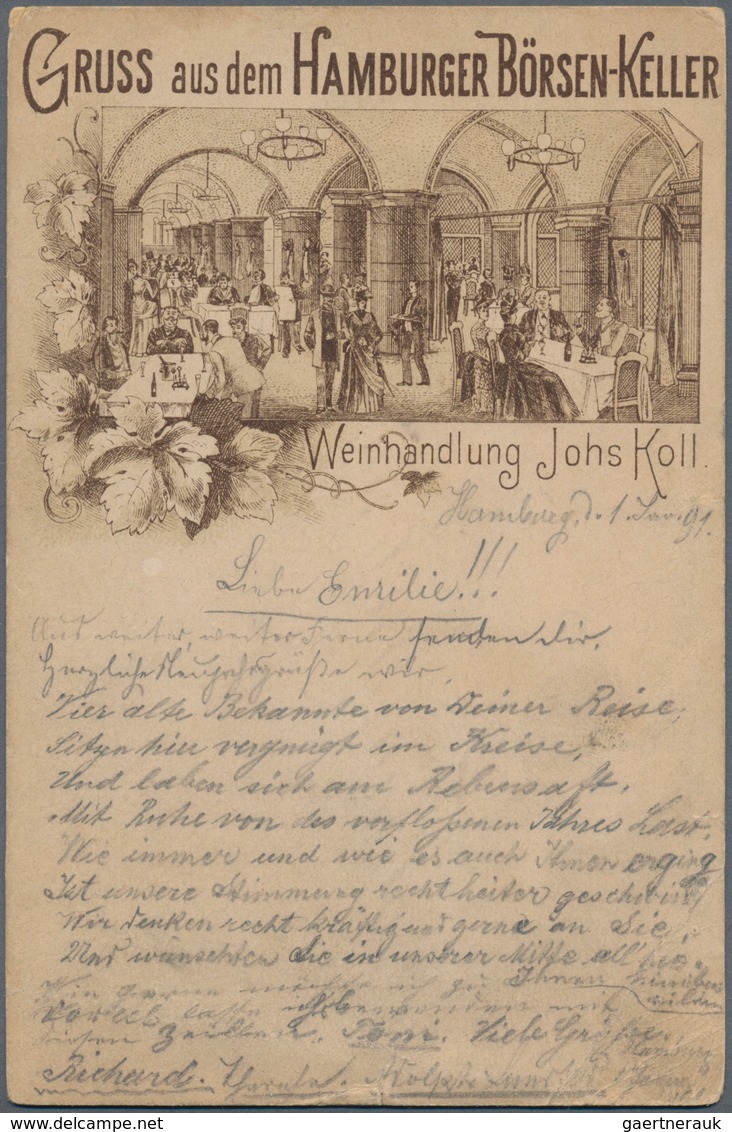 GRUSS aus dem HAMBURGER BÖRSEN-KELLER
Weinhandlung Johs Koll.
Hamburg, d. 1. Jan. 91.
Liebe Emilie!!!
Aus weiter, weiter Ferne senden dir,
Herzliche Neujahrsgrüße wir,
Vier alte Bekannte von Deiner Reise,
Sitzen hier vergnügt im Kreise,
Und laben sich am Rebensaft,
Mit Ruhe von des verfloßenen Jahres Last,
Wie immer und wie es auch Ihnen erging
Ist unsere Stimmung recht heiter
Wir denken recht kräftig und gerne an Sie,
Und wünschten Sie in unserer Mitte all hie.
gerne möchte ich zu Ihnen
Zeilen. Toni. Viele Grüße
Richard.
gaertnerauk